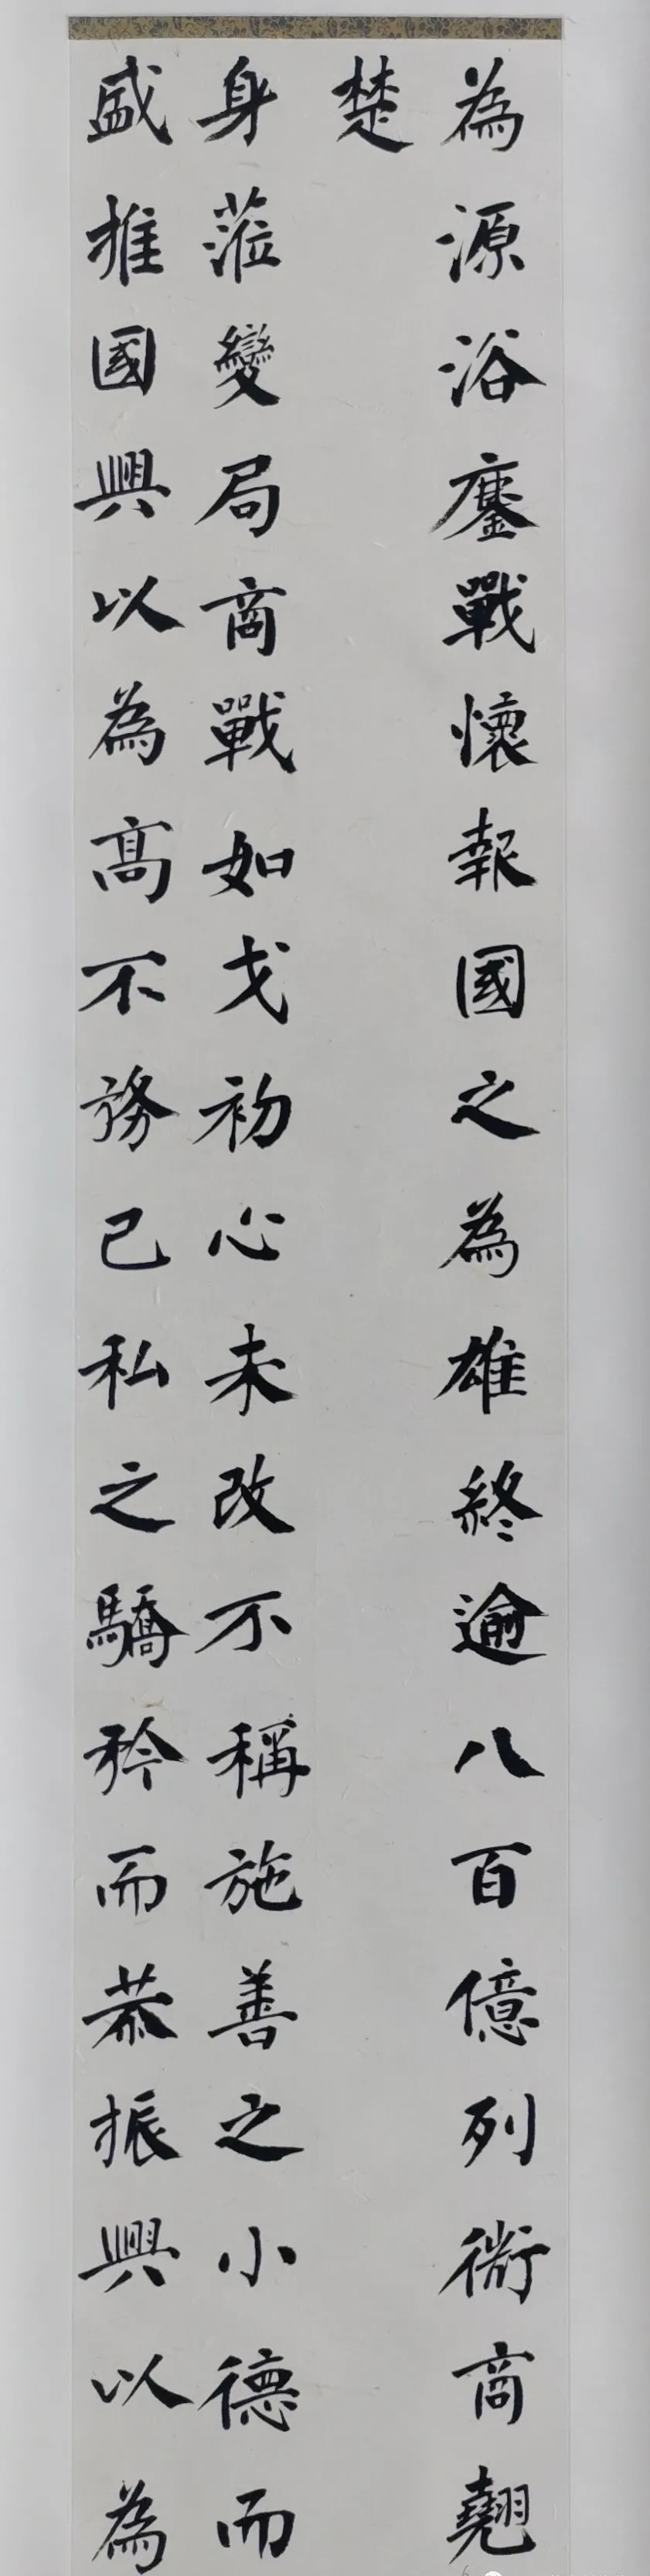 為源浴鏖戰懷報國之為雄終逾八百億列衙商翹
楚
身蒞變局商戰如戈初心未改不稱施善之小德而
盛推國興以為高不務己私之驕矜而恭振興以為